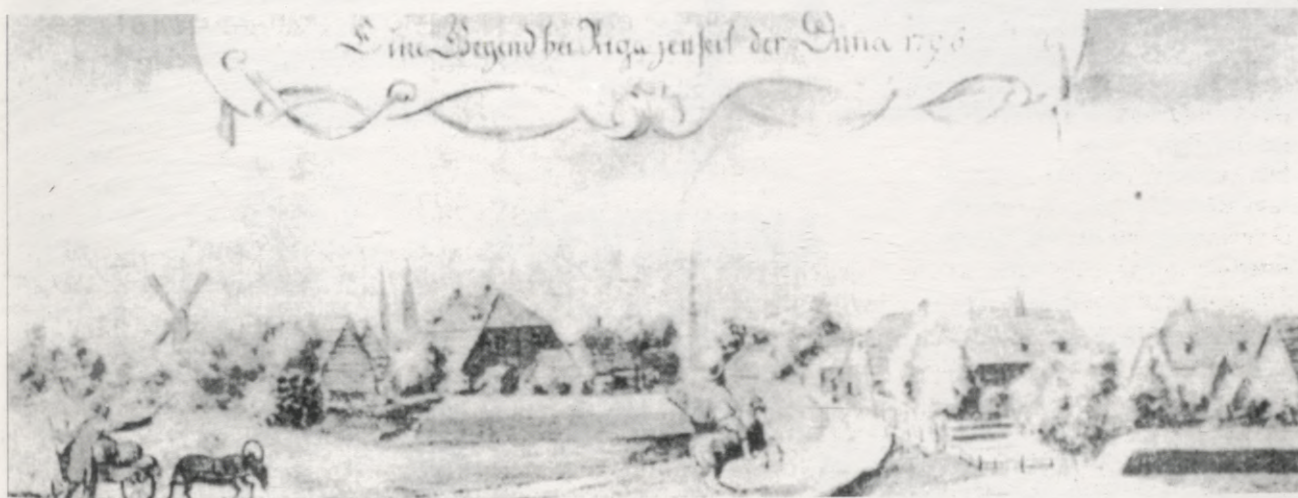 Eine Gegend bei Riga jenseit der Düna 1796